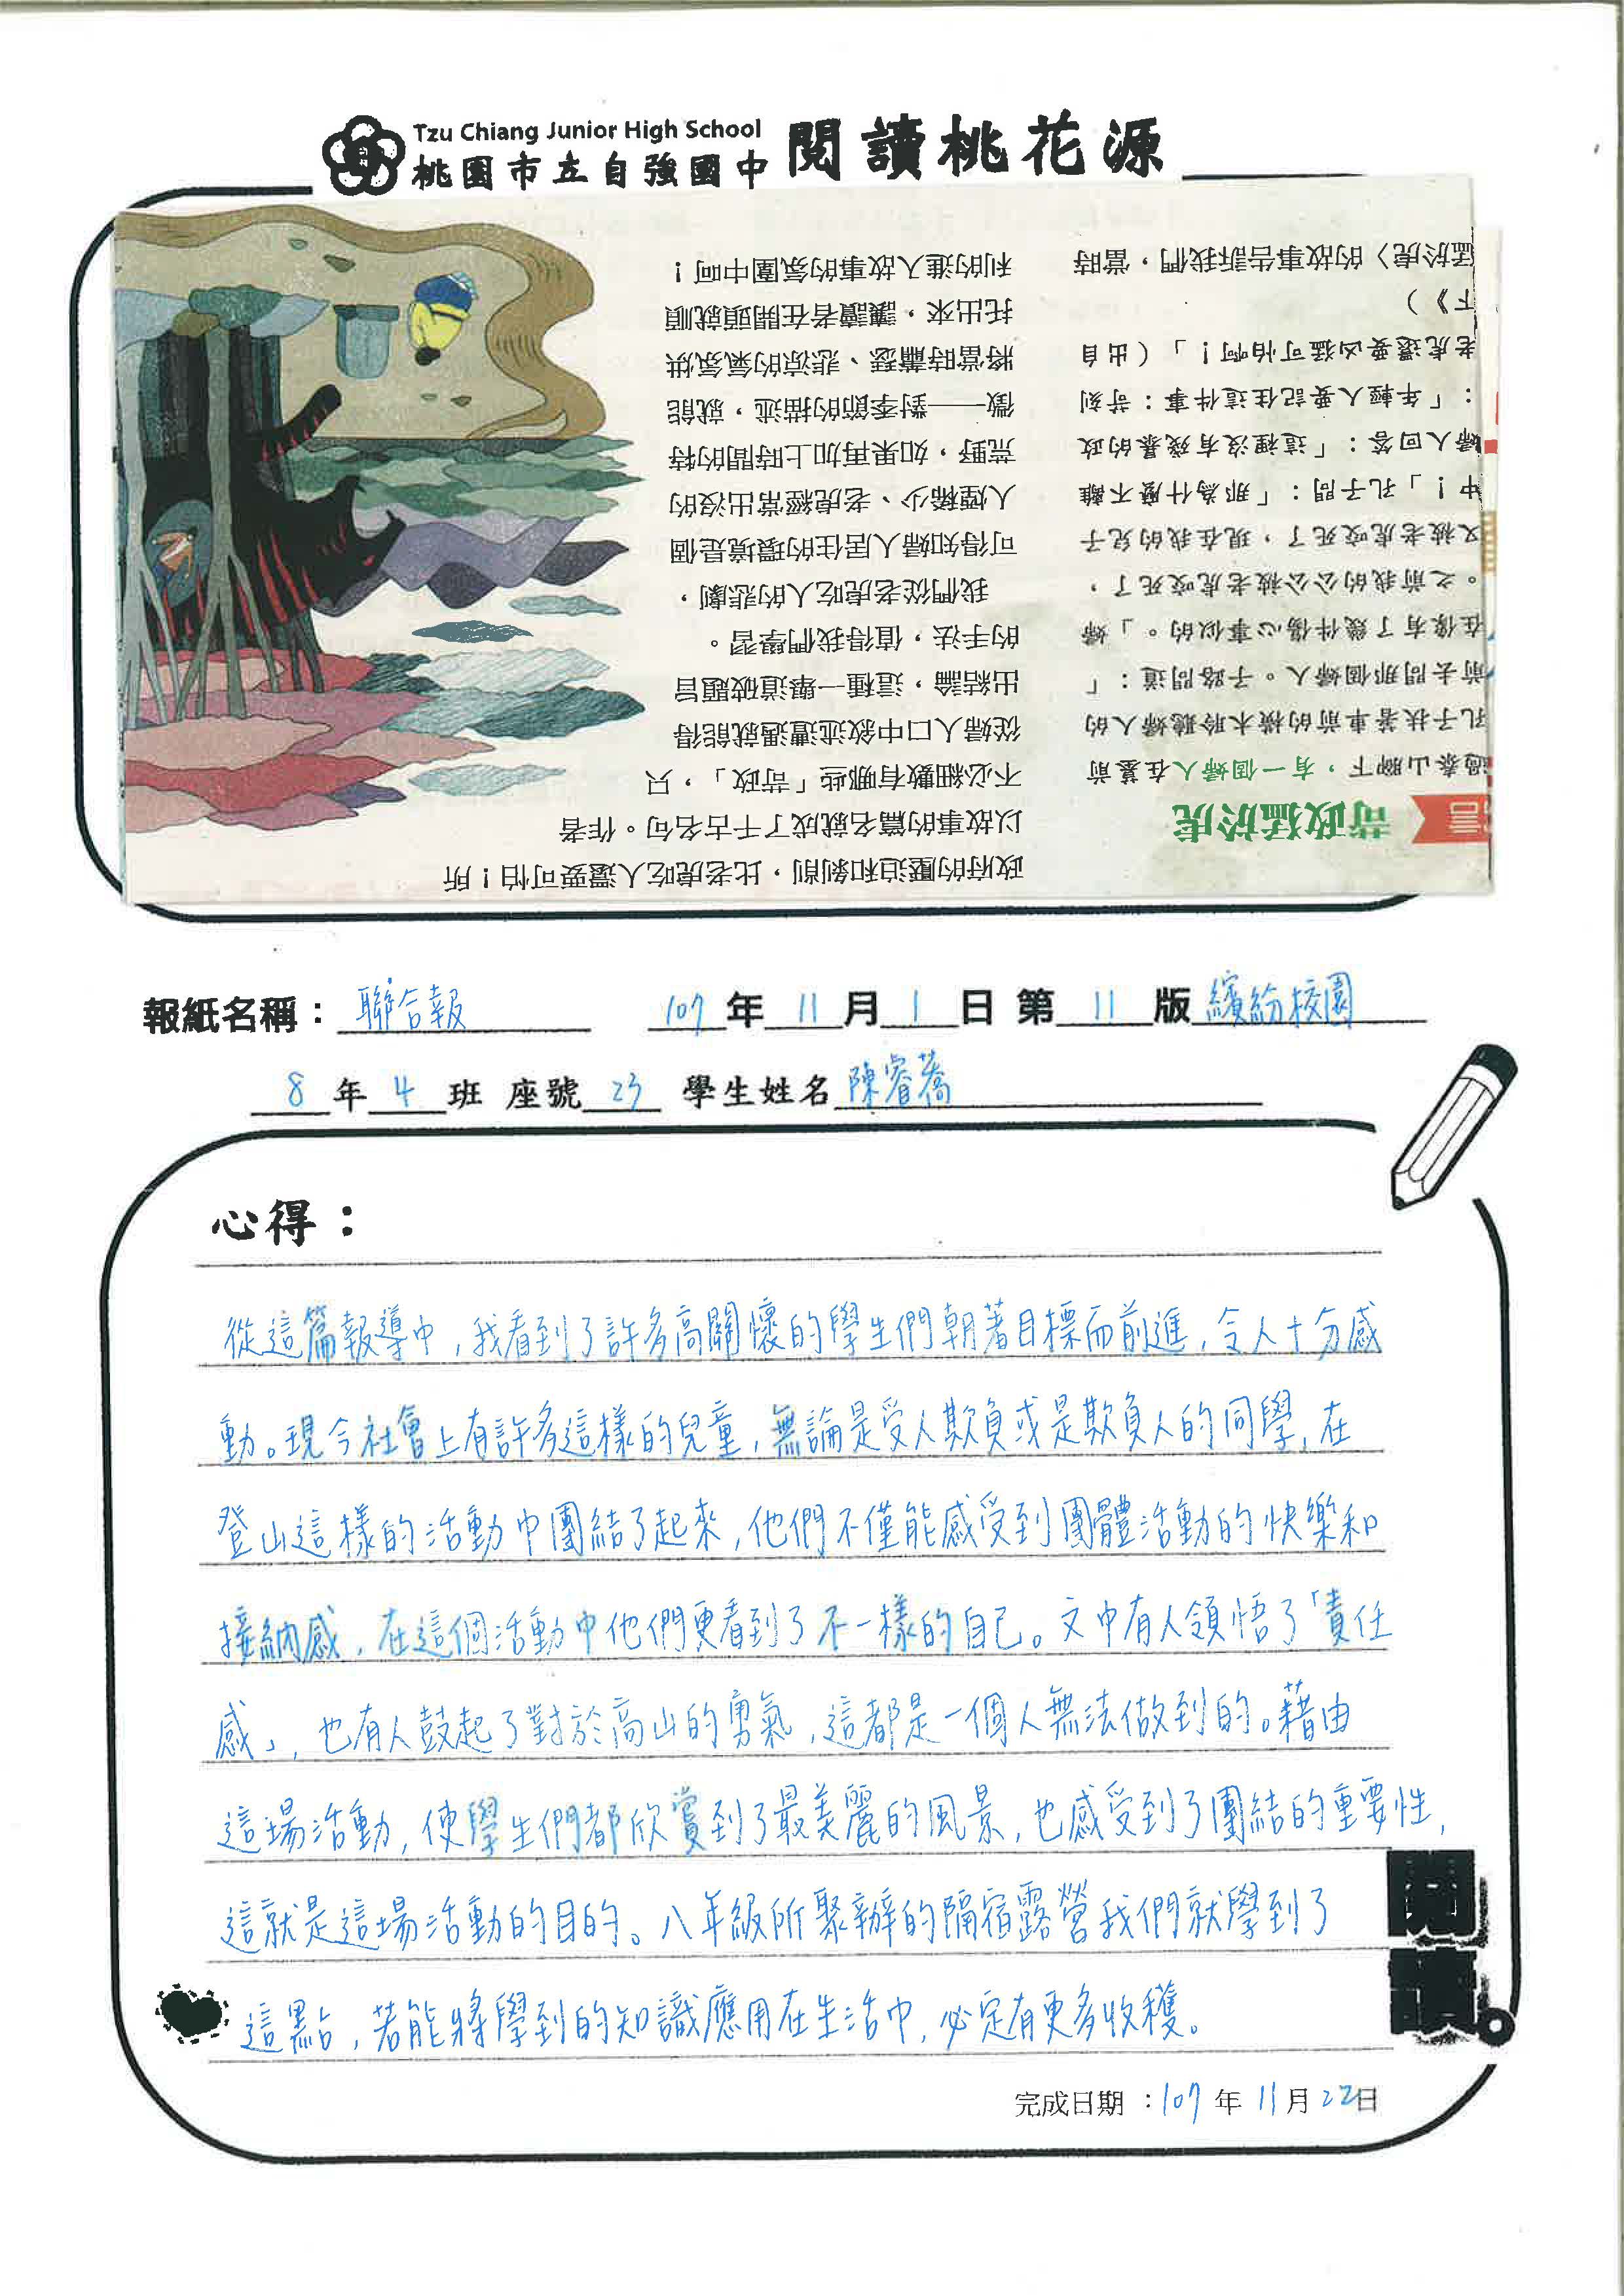 Tzu Chiang Junior High School
桃園市立自強國中 閱讀桃花源
苛政猛於虎
過泰山腳下,有一個婦人在墓前
孔子扶著車前的橫木聆聽婦人的
前去問那個婦人。子路問道:「
在像有了幾件傷心事似的。」婦
。之前我的公公被老虎咬死了,
又被老虎咬死了,現在我的兒子
中!」孔子問:「那為什麼不離
婦人回答:「這裡沒有殘暴的政
:「年輕人要記住這件事:苛刻
老虎還要凶猛可怕啊!」(出自
下》)
猛於虎〉的故事告訴我們,當時
政府的壓迫和剝削,比老虎吃人還要可怕!所
以故事的篇名就成了千古名句。作者
不必細數有哪些「苛政」,只
從婦人口中敘述遭遇就能得
出結論,這種一舉道破題旨
的手法,值得我們學習。
我們從老虎吃人的悲劇,
可得知婦人居住的環境是個
人煙稀少、老虎經常出沒的
荒野,如果再加上時間的特
徵——對季節的描述,就能
將當時蕭瑟、悲涼的氣氛烘
托出來,讓讀者在開頭就順
利的進入故事的氛圍中呵!
報紙名稱:聯合報 107年11月1日 第11版 繽紛校園
8年4班 座號23 學生姓名 陳睿蕎
心得:
從這篇報導中,我看到了許多高關懷的學生們朝著目標而前進,令人十分感
動。現今社會上有許多這樣的兒童,無論是受人欺負或是欺負人的同學,在
登山這樣的活動中團結了起來,他們不僅能感受到團體活動的快樂和
接納感,在這個活動中他們更看到了不一樣的自己。文中有人領悟了「責任
感」,也有人鼓起了對於高山的勇氣,這都是一個人無法做到的。藉由
這場活動,使學生們都欣賞到了最美麗的風景,也感受到了團結的重要性,
這就是這場活動的目的。八年級所聚辦的隔宿露營我們就學到了
這點,若能將學到的知識應用在生活中,必定有更多收穫。
閱讀。
完成日期:107年11月22日